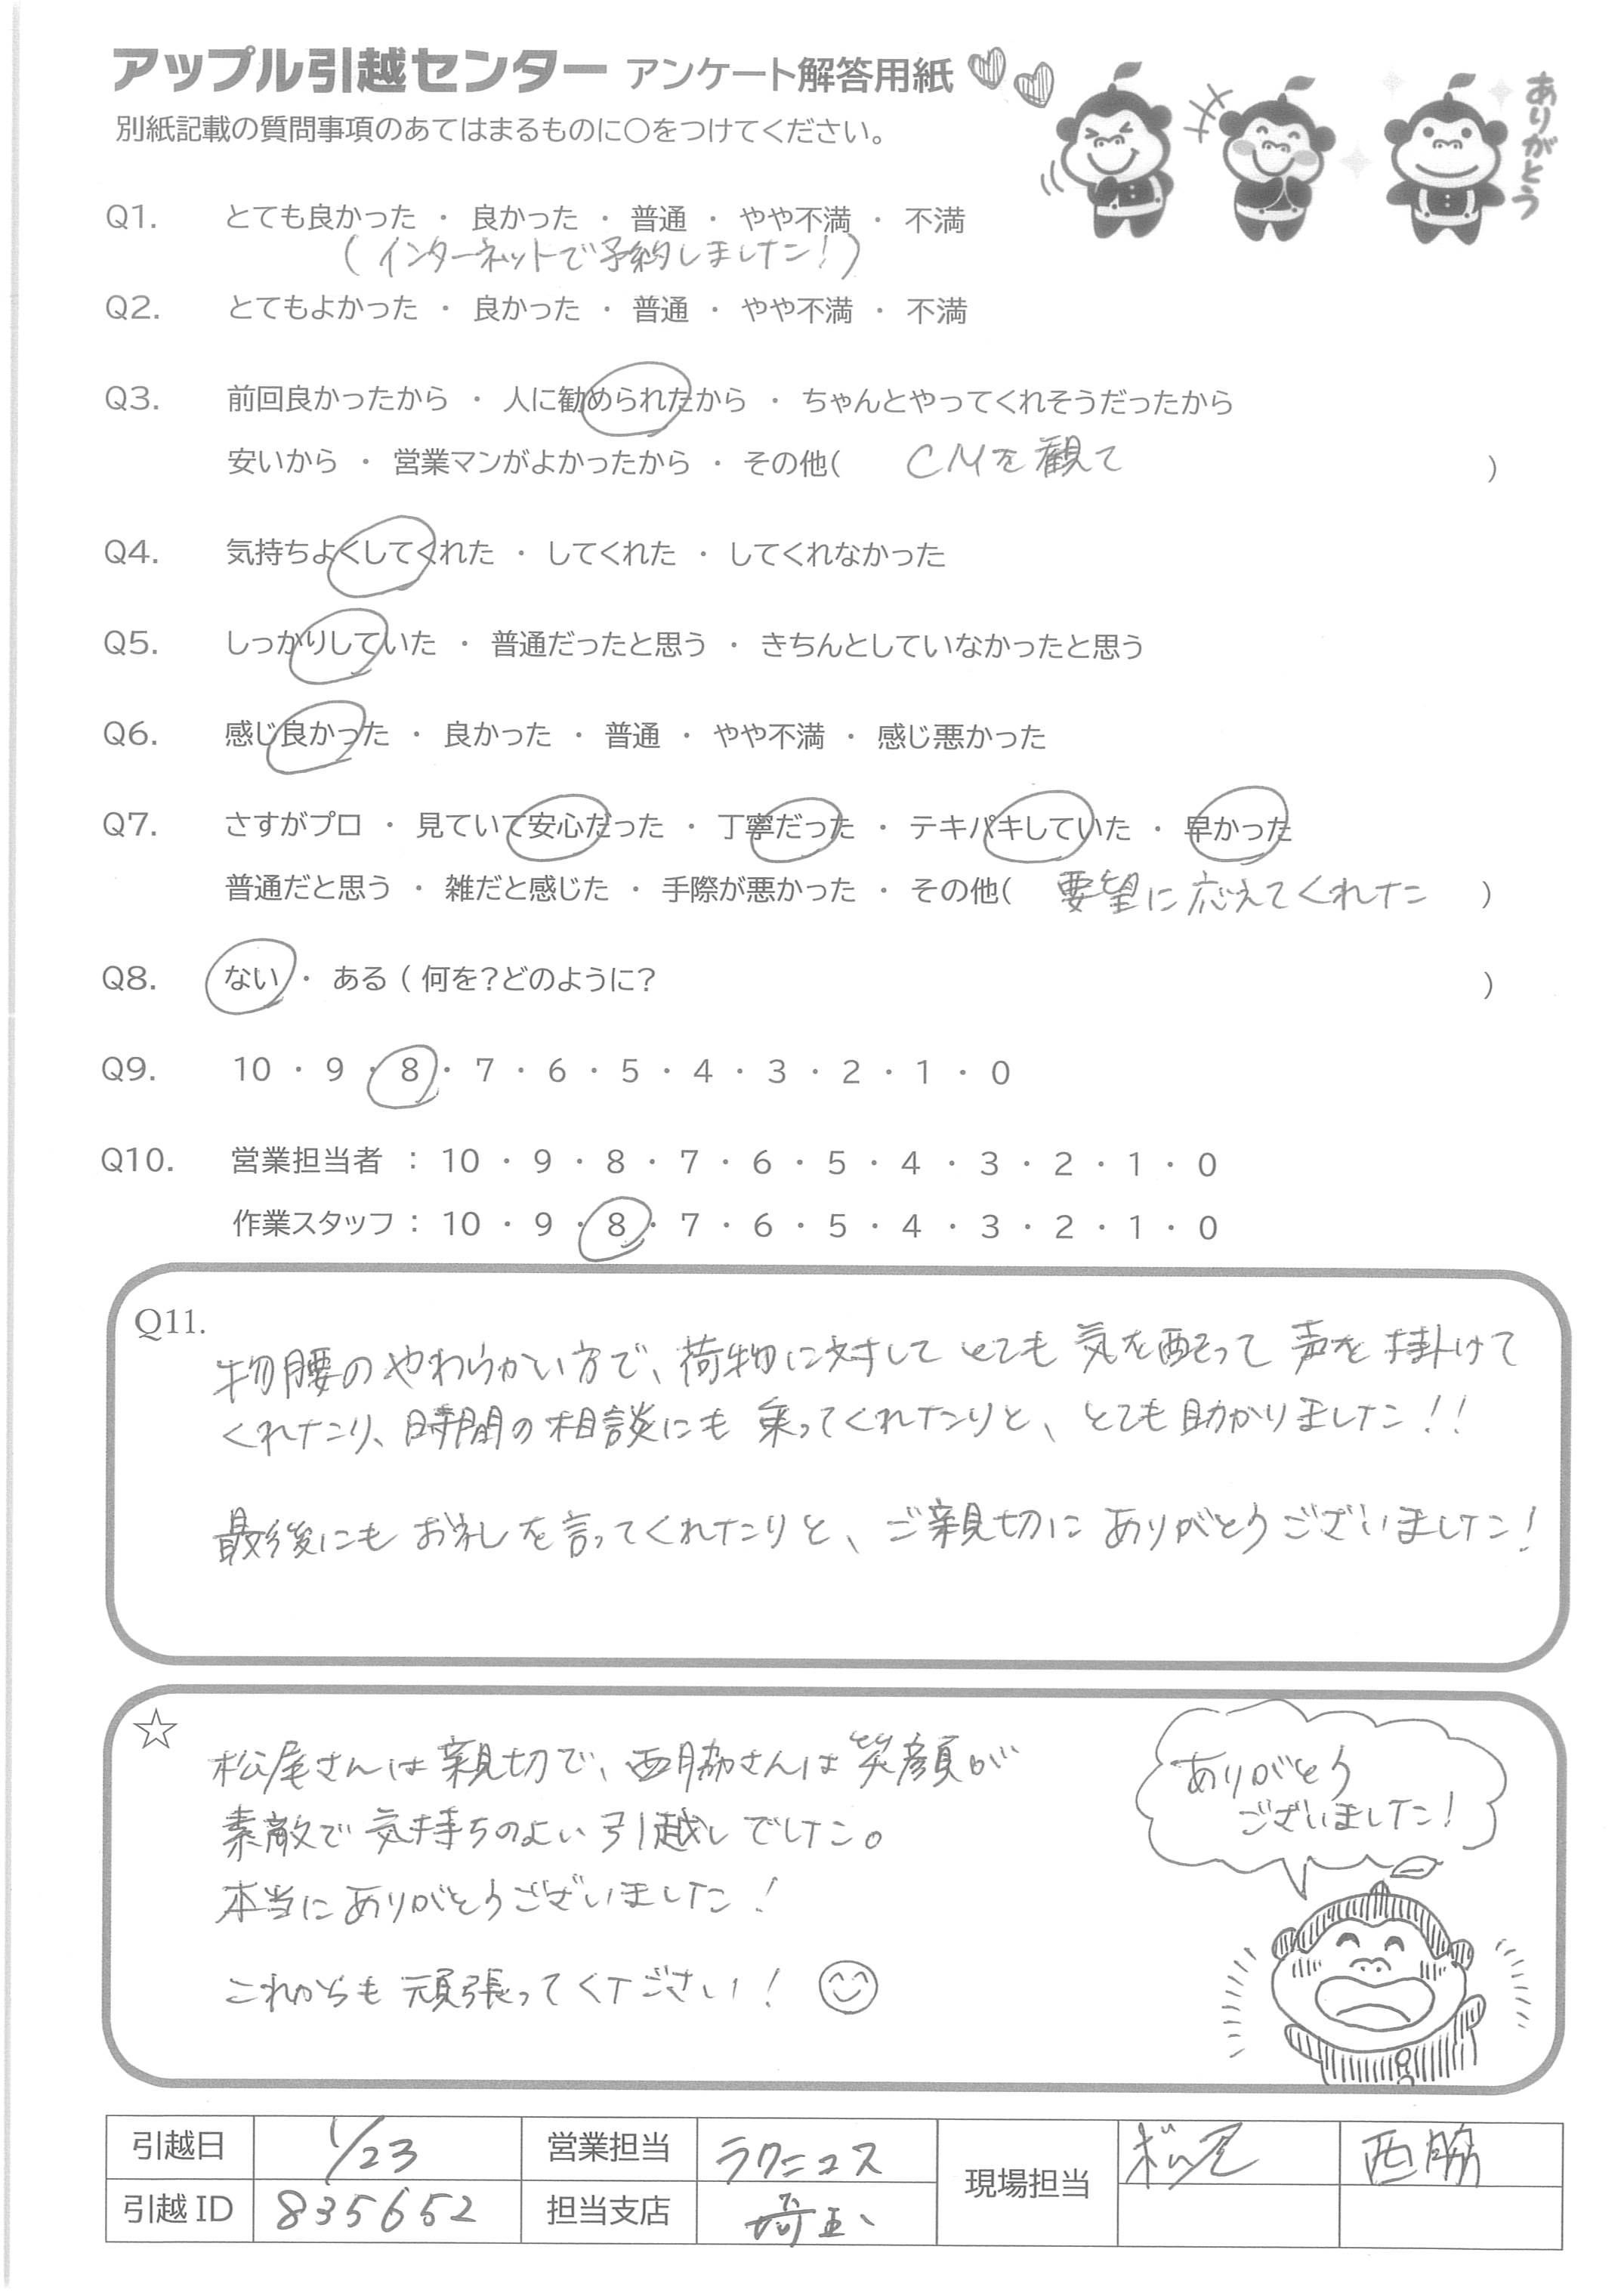 アップル引越センター アンケート解答用紙
ありがとう
別紙記載の質問事項のあてはまるものに○をつけてください。
Q1. とても良かった ・ 良かった ・ 普通 ・ やや不満 ・ 不満
(インターネットで予約しました!)
Q2. とてもよかった ・ 良かった ・ 普通 ・ やや不満 ・ 不満
Q3. 前回良かったから ・ 人に勧められたから ・ ちゃんとやってくれそうだったから
安いから ・ 営業マンがよかったから ・ その他( CMを観て )
Q4. 気持ちよくしてくれた ・ してくれた ・ してくれなかった
Q5. しっかりしていた ・ 普通だったと思う ・ きちんとしていなかったと思う
Q6. 感じ良かった ・ 良かった ・ 普通 ・ やや不満 ・ 感じ悪かった
Q7. さすがプロ ・ 見ていて安心だった ・ 丁寧だった ・ テキパキしていた ・ 早かった
普通だと思う ・ 雑だと感じた ・ 手際が悪かった ・ その他( 要望に応えてくれた )
Q8. ない ・ ある ( 何を?どのように? )
Q9. 10 ・ 9 ・ 8 ・ 7 ・ 6 ・ 5 ・ 4 ・ 3 ・ 2 ・ 1 ・ 0
Q10. 営業担当者 : 10 ・ 9 ・ 8 ・ 7 ・ 6 ・ 5 ・ 4 ・ 3 ・ 2 ・ 1 ・ 0
作業スタッフ : 10 ・ 9 ・ 8 ・ 7 ・ 6 ・ 5 ・ 4 ・ 3 ・ 2 ・ 1 ・ 0
Q11.
物腰のやわらかい方で、荷物に対してとても気を配って声を掛けて
くれたり、時間の相談にも乗ってくれたりと、とても助かりました!!
最後にもお礼を言ってくれたりと、ご親切にありがとうございました!
☆
松尾さんは親切で、西脇さんは笑顔が
素敵で気持ちのよい引越しでした。
本当にありがとうございました!
これからも頑張ってください!
ありがとう
ございました!
引越日 1/23 営業担当 ラクニコス 現場担当 松尾 西脇
引越ID 835652 担当支店 埼玉